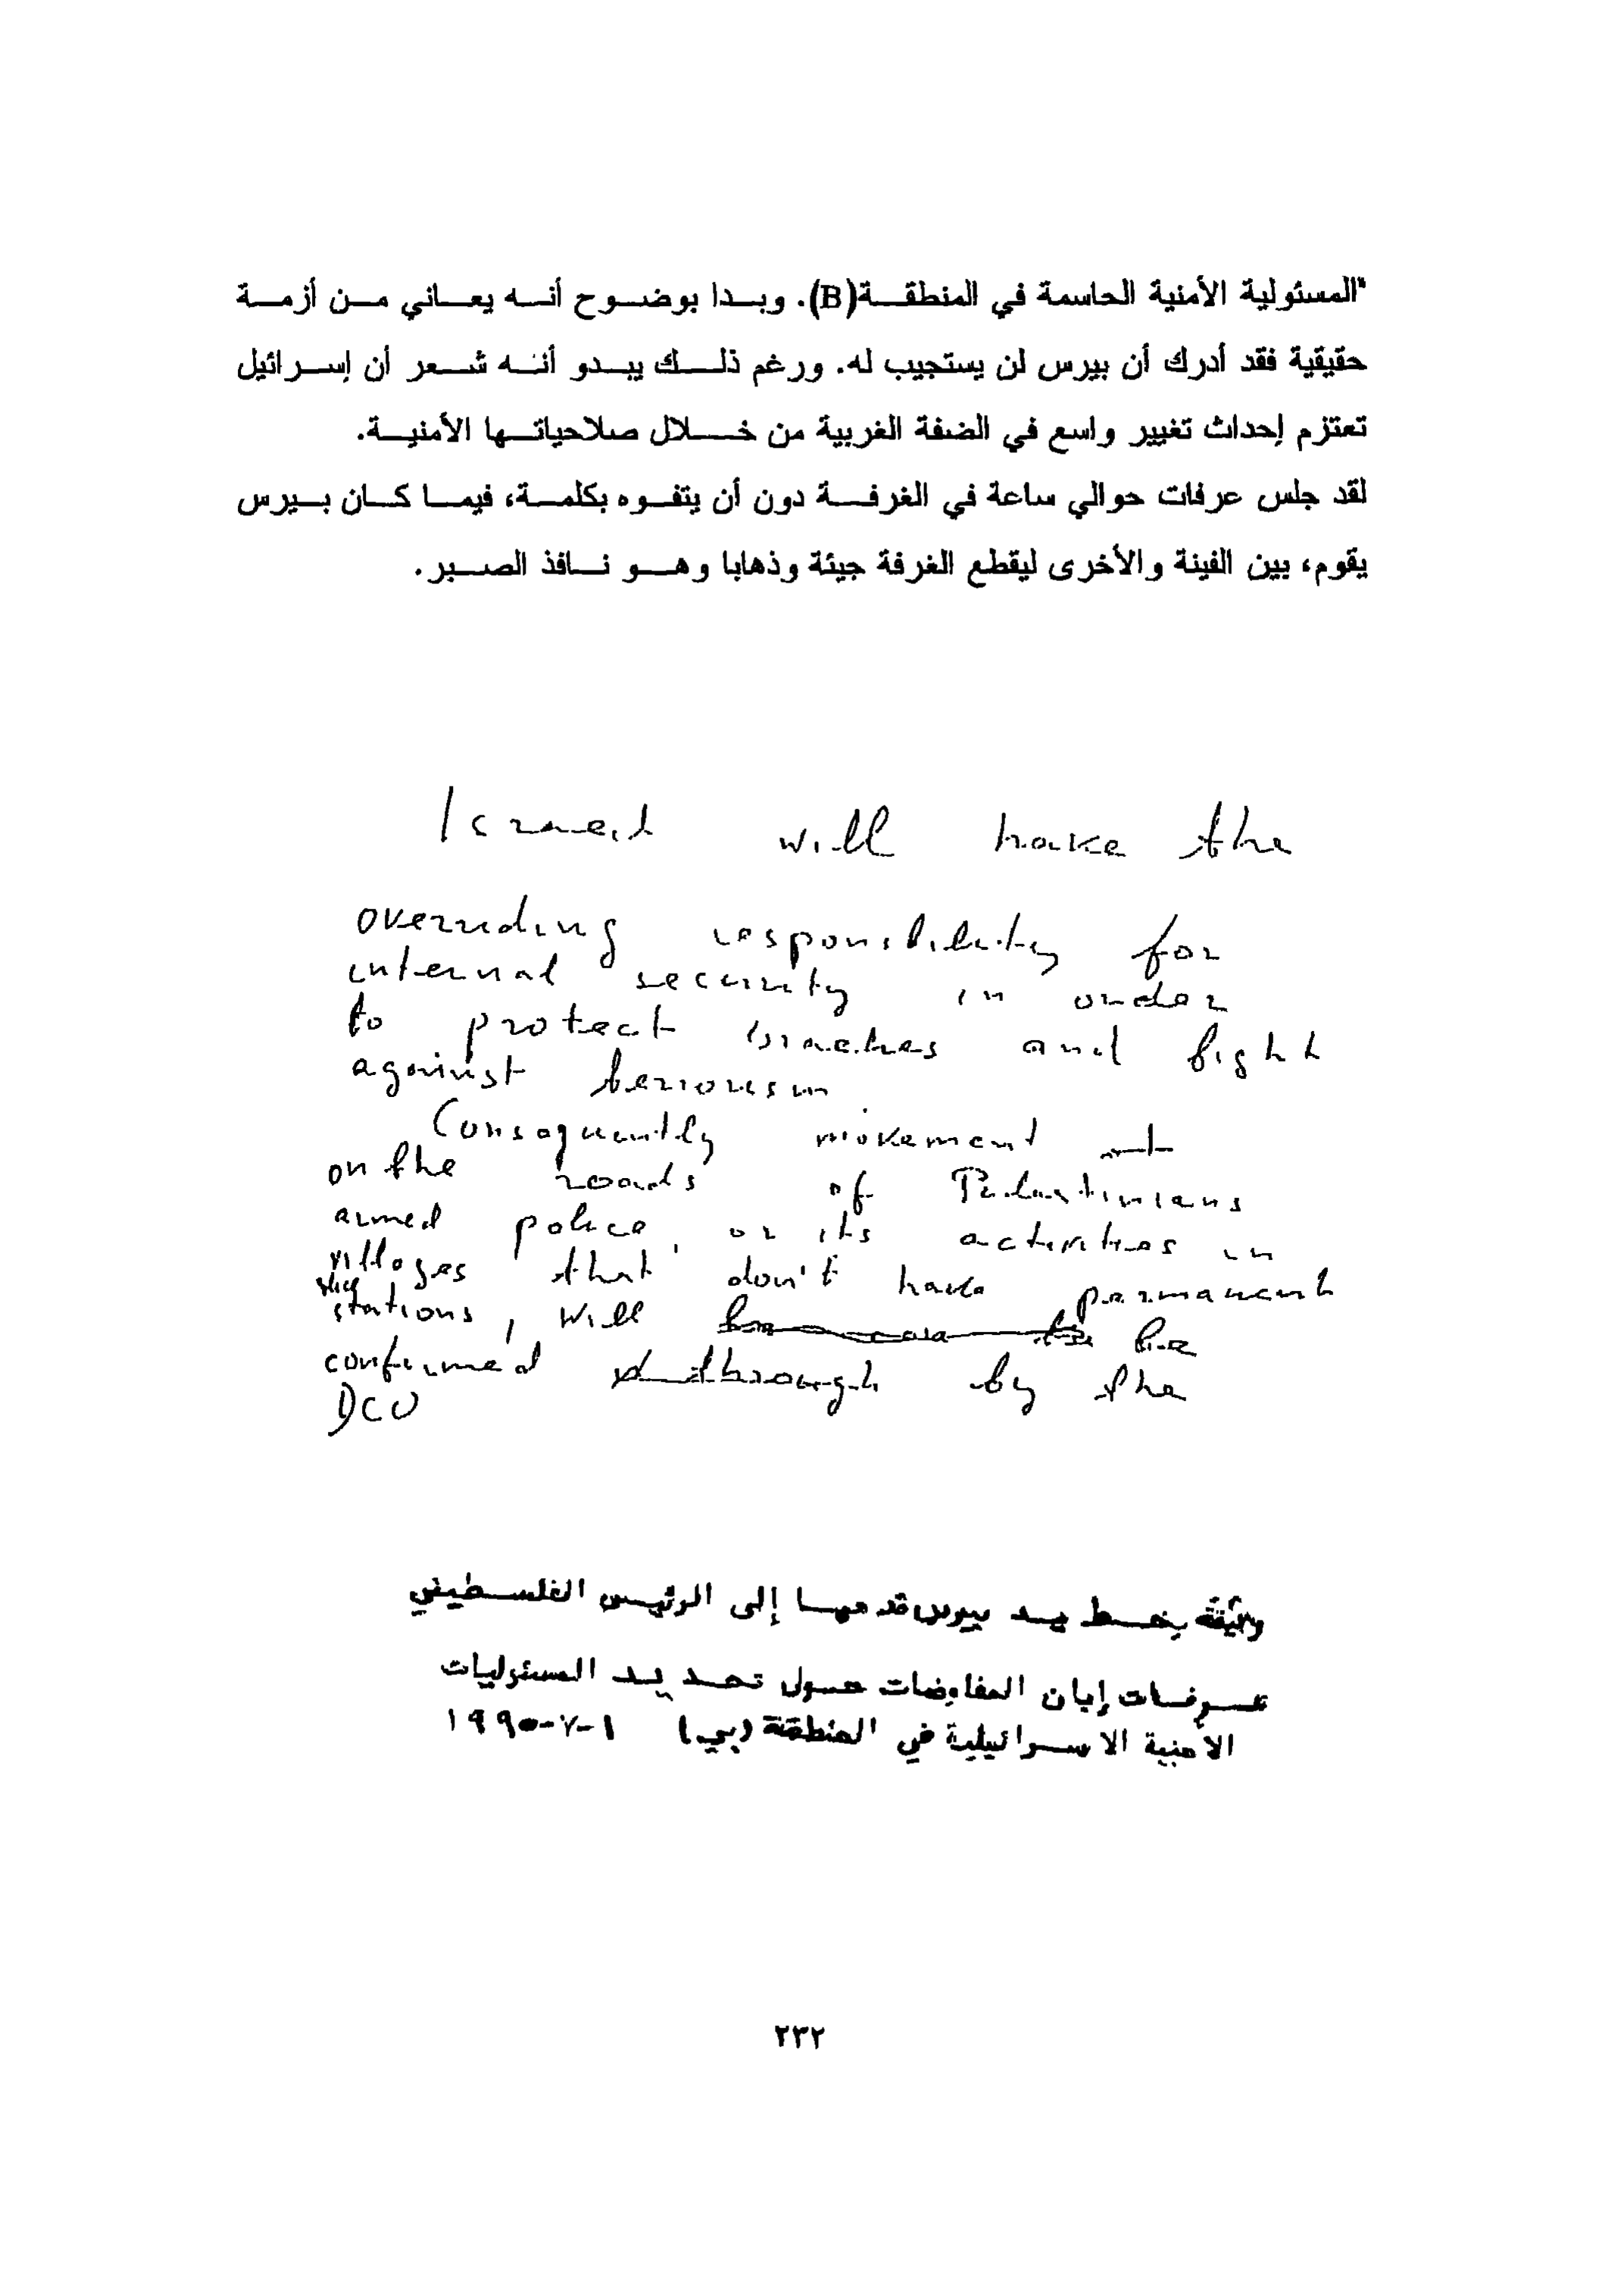 "المسئولية الأمنية الحاسمة في المنطقة(B). وبدا بوضوح أنه يعاني من أزمة
حقيقية فقد أدرك أن بيرس لن يستجيب له. ورغم ذلك يبدو أنه شعر أن إسرائيل
تعتزم إحداث تغيير واسع في الضفة الغربية من خلال صلاحياتها الأمنية.
لقد جلس عرفات حوالي ساعة في الغرفة دون أن يتفوه بكلمة، فيما كان بيرس
يقوم، بين الفينة والأخرى ليقطع الغرفة جيئة وذهابا وهو نافذ الصبر.
Israel will have the
overriding responsibility for
internal security in order
to protect Israelies and fight
against terrorism
Consequently movement
on the roads of Palestinians
armed police, or its activities in
villages that don't have permanent
stations, will be
confirmed through by the
DCO
وثيقة بخط يد بيرس قدمها إلى الرئيس الفلسطيني
عرفات إبان المفاوضات حول تحديد المسئوليات
الأمنية الاسرائيلية في المنطقة (بي) ١-٧-١٩٩٥
٢٣٢